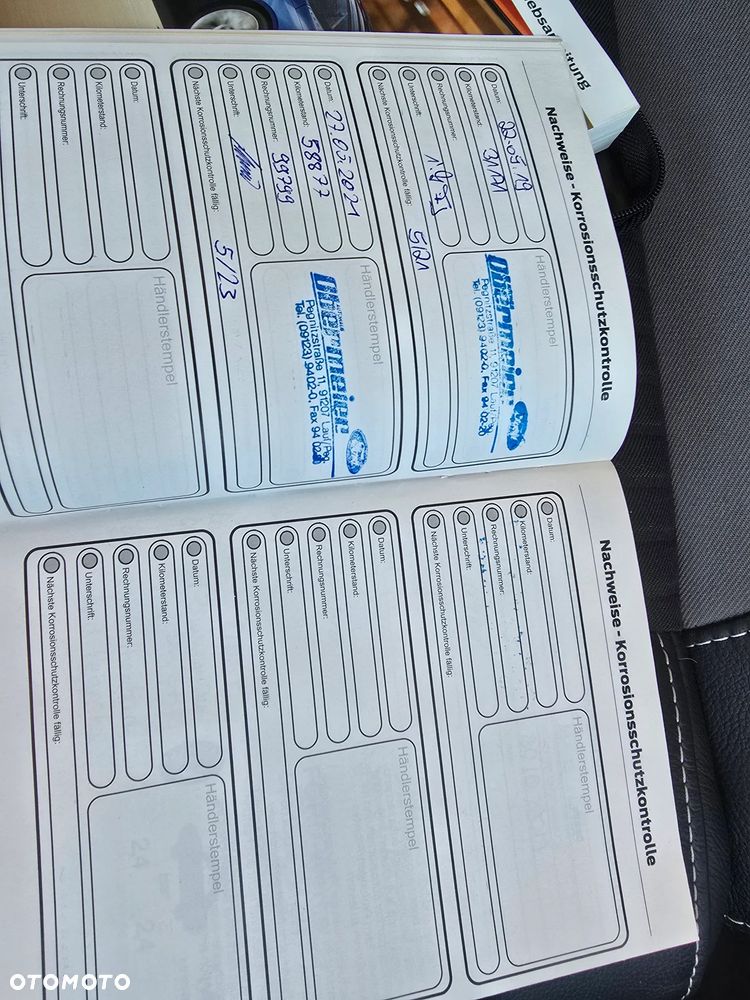 ebsanleitung
Nachweise - Korrosionsschutzkontrolle
Datum: 22.05.19
Kilometerstand: 31121
Rechnungsnummer:
Unterschrift:
Nächste Korrosionsschutzkontrolle fällig: 5/21
Händlerstempel
Obermeier
Pegnitzstraße 11, 91207 Lauf/Peg
Tel. (09123) 94 02-0, Fax 94 02-20
Datum: 27.05.2021
Kilometerstand: 58877
Rechnungsnummer: 99799
Unterschrift:
Nächste Korrosionsschutzkontrolle fällig: 5/23
Händlerstempel
Obermeier
Pegnitzstraße 11, 91207 Lauf/Peg
Tel. (09123) 9402-0, Fax 94 02
Datum:
Kilometerstand:
Rechnungsnummer:
Unterschrift:
Händlerstempel
Nachweise - Korrosionsschutzkontrolle
Datum:
Kilometerstand:
Rechnungsnummer:
Unterschrift:
Nächste Korrosionsschutzkontrolle fällig:
Händlerstempel
Datum:
Kilometerstand:
Rechnungsnummer:
Unterschrift:
Nächste Korrosionsschutzkontrolle fällig:
Händlerstempel
Datum:
Kilometerstand:
Rechnungsnummer:
Unterschrift:
Nächste Korrosionsschutzkontrolle fällig:
Händlerstempel
OTOMOTO